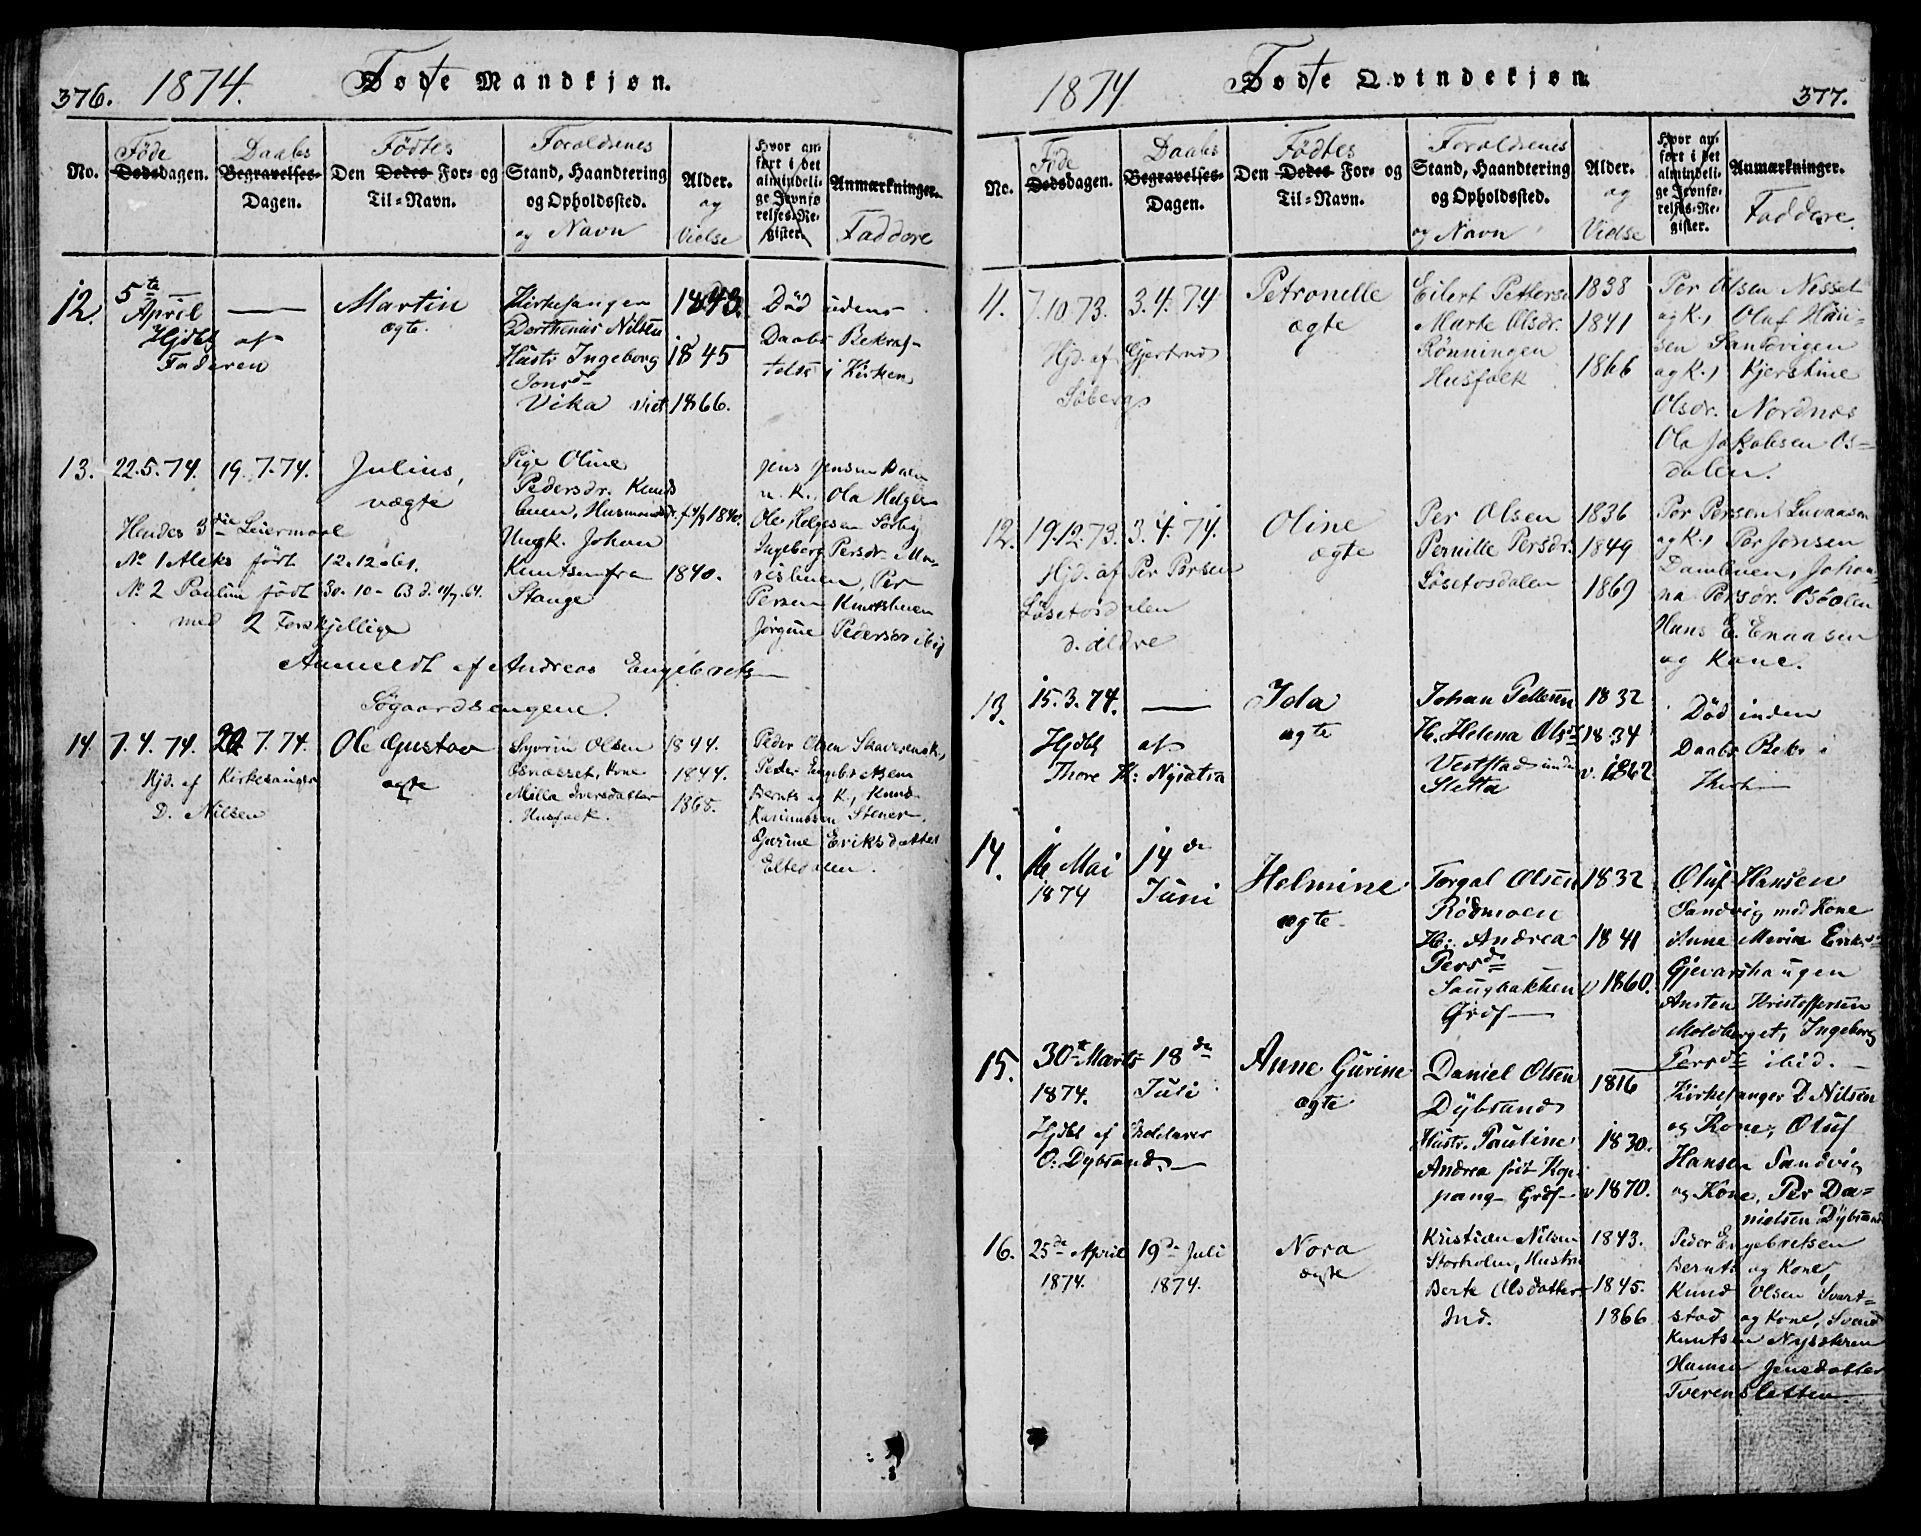 376. 1874. Fødte Mandkjøn.
No.
Føde
Dødsdagen.
Daabs
Begravelses-
Dagen.
Fødtes
Den Dødes For- og
Til-Navn.
Forældrenes
Stand, Haandtering
og Opholdssted.
og Navn
Alder.
og
Vielse
Hvor an-
ført i det
almindeli-
ge Jevnfø-
relses-Re-
gister.
Anmærkninger.
Faddere
12.
5te
April
Hjdbt af
Faderen
Martin
ægte.
Kirkesanger
Dorthenius Nilsen
Hustr Ingeborg
Jonsd
Vika viet
1843.
1845
1866.
Død uden
Daabs Bekræf-
telse i Kirken
13.
22.5.74.
19.7.74.
Julius,
uægte
Pige Oline
Pedersdr. Knuds
buen, Husmandsdr. f 4/9 1840.
Ungk. Johan
Knutsen fra
Stange
1840.
Hendes 3die Leiermaal
No 1 Aleks født 12.12.61.
No 2 Pauline født 30-10-63 d. 11/9. 64.
med 2 Forskjellige
Anmeldt af Andreas Engebrets
Søgaardsengene.
Jens Jensen
u. K., Ola Helges
Ole Helgesen
Ingeborg Persdr. Mo-
risbuen, Per
Persen Knutsbuen
Jørgine Pedersdr ibid
14.
7.4.74.
20.7.74.
Hjd. af Kirkesanger
D. Nilsen
Ole Gustav
ægte
Syvrin Olsen
Osnesset, Kone
Milla Iversdatter
Husfolk.
1844.
1844.
1868.
Peder Olsen
Peder Engebretsen
Bernts og K., Knud
Rasmussen Stener,
Gurine Eriksdatter
Eltedalen.
1874 Fødte Qvindekjøn 377.
No.
Føde
Dødsdagen.
Daabs
Begravelses-
Dagen.
Fødtes
Den Dødes For- og
Til-Navn.
Forældrenes
Stand, Haandtering
og Opholdssted.
og Navn
Alder.
og
Vielse
Hvor an-
ført i det
almindeli-
ge Jevnfø-
relses-Re-
gister.
Anmærkninger.
Faddere.
11.
7.10.73.
3.4.74
Hjd. af Gjertrud
Søberg
Petronelle
ægte
Eilert Petterse
Marte Olsdr.
Rønningen
Husfolk
1838
1841
1866
Per Olsen Nesset
og K., Oluf Han-
sen Sandvigen
og K., Kjerstine
Olsdr. Nordnes
Ola Jakobsen Os-
dalen.
12.
19.12.73.
3.4.74.
Hjd. af Per Persen
Løsetosdalen
d. ældre
Oline
ægte
Per Olsen
Pernille Persdr.
Løsetosdalen
1836
1849
1869
Per Persen Luvaasen
og K., Per Jonsen
Dambuen, Johan-
na Persdr.
Hans E. Enaasen
og Kone.
13.
15.3.74.
Hjdbt af
Thore H: Nysætra
Ida
ægte
Johan Pettersen
H. Helena Olsd
Veststad under
Sletta
1832
1834
v. 1862
Død inden
Daabs Bekr i
14.
16 Mai
1874
14de
Juni
Helmine
ægte
Torgal Olsen
Rødmoen
H: Andrea
Persd
Saugbakken
Grdf
1832
1841
v 1860.
Oluf Hansen
Sandvig med Kone
Anne Marie Eriksd
Gjevarshaugen
Ansten Kristoffersen
Moldberget, Ingeborg
Persd ibid.
15.
30te Marts
1874.
18de
Juli
Hjdbt af Skolelærer
O. Dybsand.
Anne Gurine
ægte
Daniel Olsen
Dybsand
Hustr. Pauline
Andrea født Kop
pang Grdf
1816
1830.
v 1870.
Kirkesanger D Nilsen
og Kone, Oluf
Hansen Sandvig
og Kone, Per Da-
nielsen Dybsand
16.
25de April
1874.
19de Juli
1874.
Nora
ægte
Kristian Nilsen
Storholm, Hustru
Berte Olsdatter
Ind.
1843.
1845.
1866
Peder Engebretsen
Bernts og Kone,
Knud Olsen Svart-
stad og Kone, Svend
Knutsen Nysæteren
Hanna Jensdatter
Tverensletten